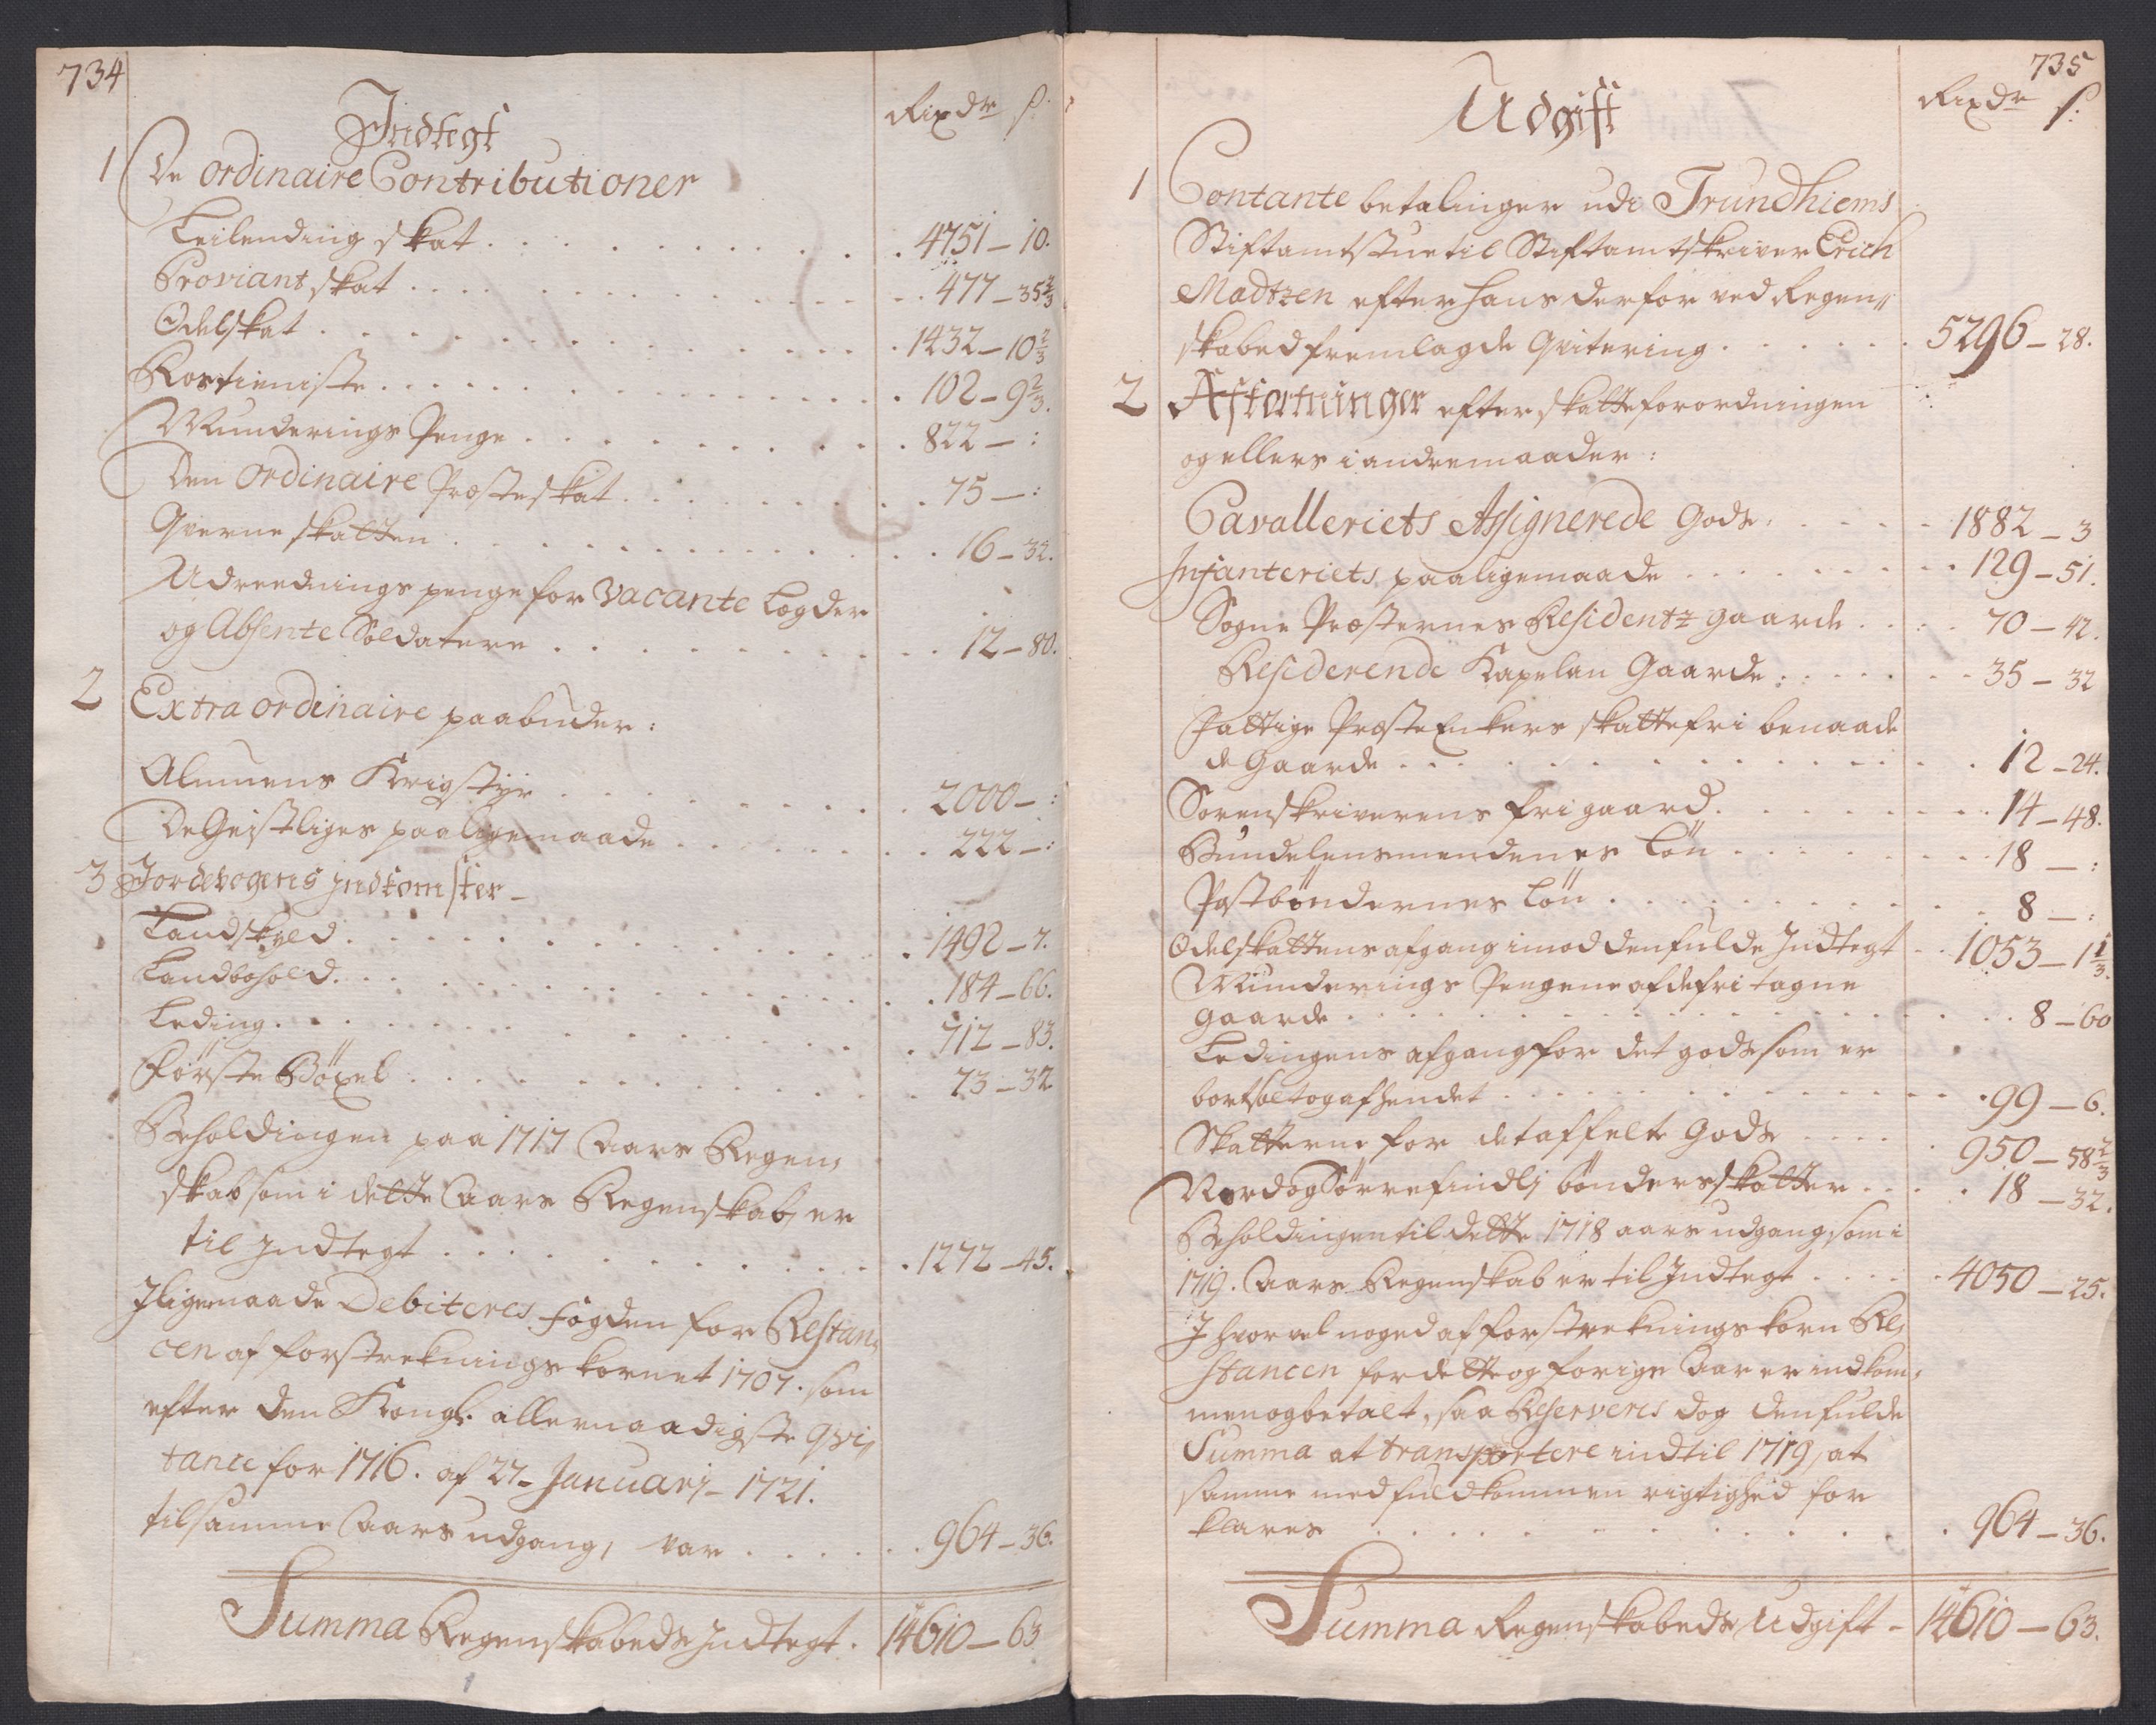 734
Indtegt
Rixdr ß:
1 De ordinaire Contributioner
Leilending skat . . . 4751 – 10.
Proviant skat . . . 477 – 35 2/3
Odelskat . . . 1432 – 10 2/3
Rostieniste . . . 102 – 9 2/3.
Munderings Penge . . . 822 – :
Den Ordinaire Præsteskat . . . 75 – :
Qverneskatten . . . 16 – 32.
Udreednings penge for Vacante Legder
og Absente Soldatere . . . 12 – 80.
2 Extra ordinaire paabuder:
Almuens Krigstyr . . . 2000 – :
De Geistliges paaligemaade . . . 222 – :
3 Jordebogens Indkomster –
Landskyld . . . 1492 – 7.
Landbohold . . . 184 – 66.
Leding . . . 712 – 83.
Förste Böxel . . . 73 – 32
Beholdingen paa 1717 Aars Regen,
skab som i dette Aars Regenskab er
til Indtegt . . . 1272 – 45.
Iligemaade Debiteres Fogden for Restan,
cen af forstreknings kornet 1707. som
efter den Kongl. allernaadigste qvi,
tance for 1716. af 27 – Januarj – 1721.
til samme Aars udgang, var . . . 964 – 36.
Summa Regenskabeds Indtegt . 14610 – 63
735
Udgift
Rixdr ß:
1 Contante betalinger udi Trundhiems
Stiftamtstue til Stiftamtskriver Erich
Madtzen efter hans derfor ved Regen,,
skabed fremlagde Qvitering . . . 5296 – 28.
2 Afkortninger efter skatteforordningen
og ellers i andre maader:
Cavalleriets Assignerede Gods . . . 1882 – 3
Infanteriets paaligemaade . . . 129 – 51.
Sogne Præsternes Residentz gaarde . . . 70 – 42.
Residerende Kapelan Gaarde . . . 35 – 32
Fattige Præste Enkers skattefri benaade
de Gaarde . . . 12 – 24.
Sorenskriverens fri gaard . . . 14 – 48.
Bundelensmendenes Lön . . . 18 – :
Postbøndernes Lön . . . 8 – :
Odelskattens afgang imod den fulde Indtegt . . 1053 – 1 1/3.
Munderings Pengene af de fritagne
gaarde . . . 8 – 60
Ledingens afgang for det gods som er
bortsolt og afhendet . . . 99 – 6.
Skatterne for det affelte Gods . . . 950 – 58 2/3
Nord og Sörrefindlj bönders skatter . . . 18 – 32.
Beholdingen til dette 1718 aars udgang, som i
1719. Aars Regenskab er til Indtegt . . . 4050 – 25.
I hvorvel noged af forstreknings korn Re,
stancen for dette og forige Aar er indkom,
men og betalt, saa Reserveris dog den fulde
Summa at transportere indtil 1719, at
samme med fuldkommen rigtighed for
klares . . . 964 – 36.
Summa Regenskabeds Udgift – 14610 – 63.